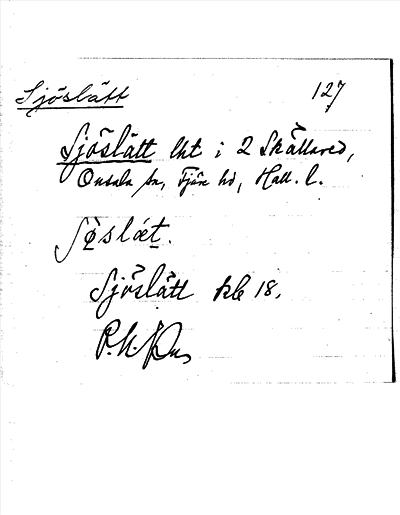 Sjöslätt 127
Sjöslätt lht i 2 Skällared,
Onsala sn, Fjäre hd, Hall. l.
Sjöslätt kbl 18.